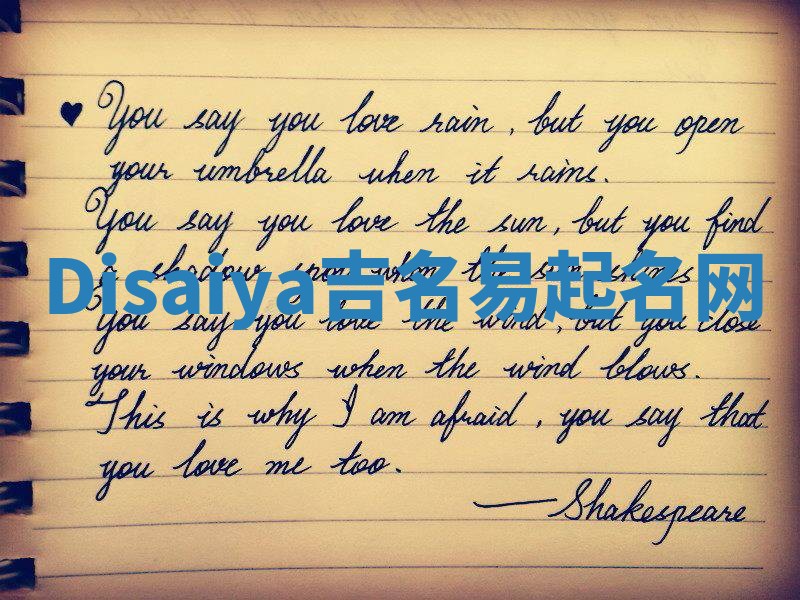 ♥ You say you love rain, but you open
your umbrella when it rains.
You say you love the sun, but you find
a shadow spot when the sun shines
Disaiya吉名易起名网
You say you love the wind, but you close
your windows when the wind blows.
This is why I am afraid, you say that
you love me too.
—Shakespeare